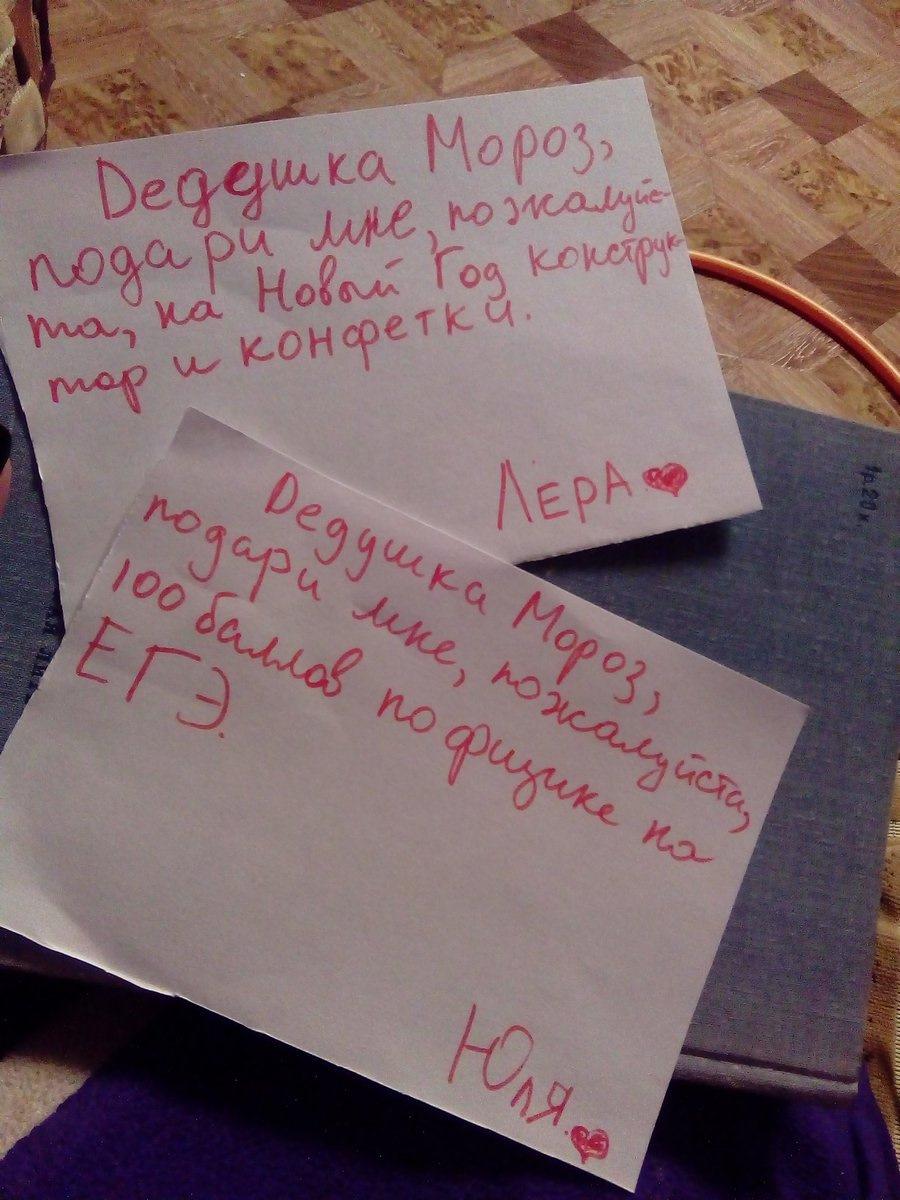 Дедушка Мороз,
подари мне, пожалуйс-
та, на Новый Год конструк-
тор и конфетки.
ЛЕРА
Дедушка Мороз,
подари мне, пожалуйста,
100 баллов по физике на
ЕГЭ.
Юля.
1р.20к